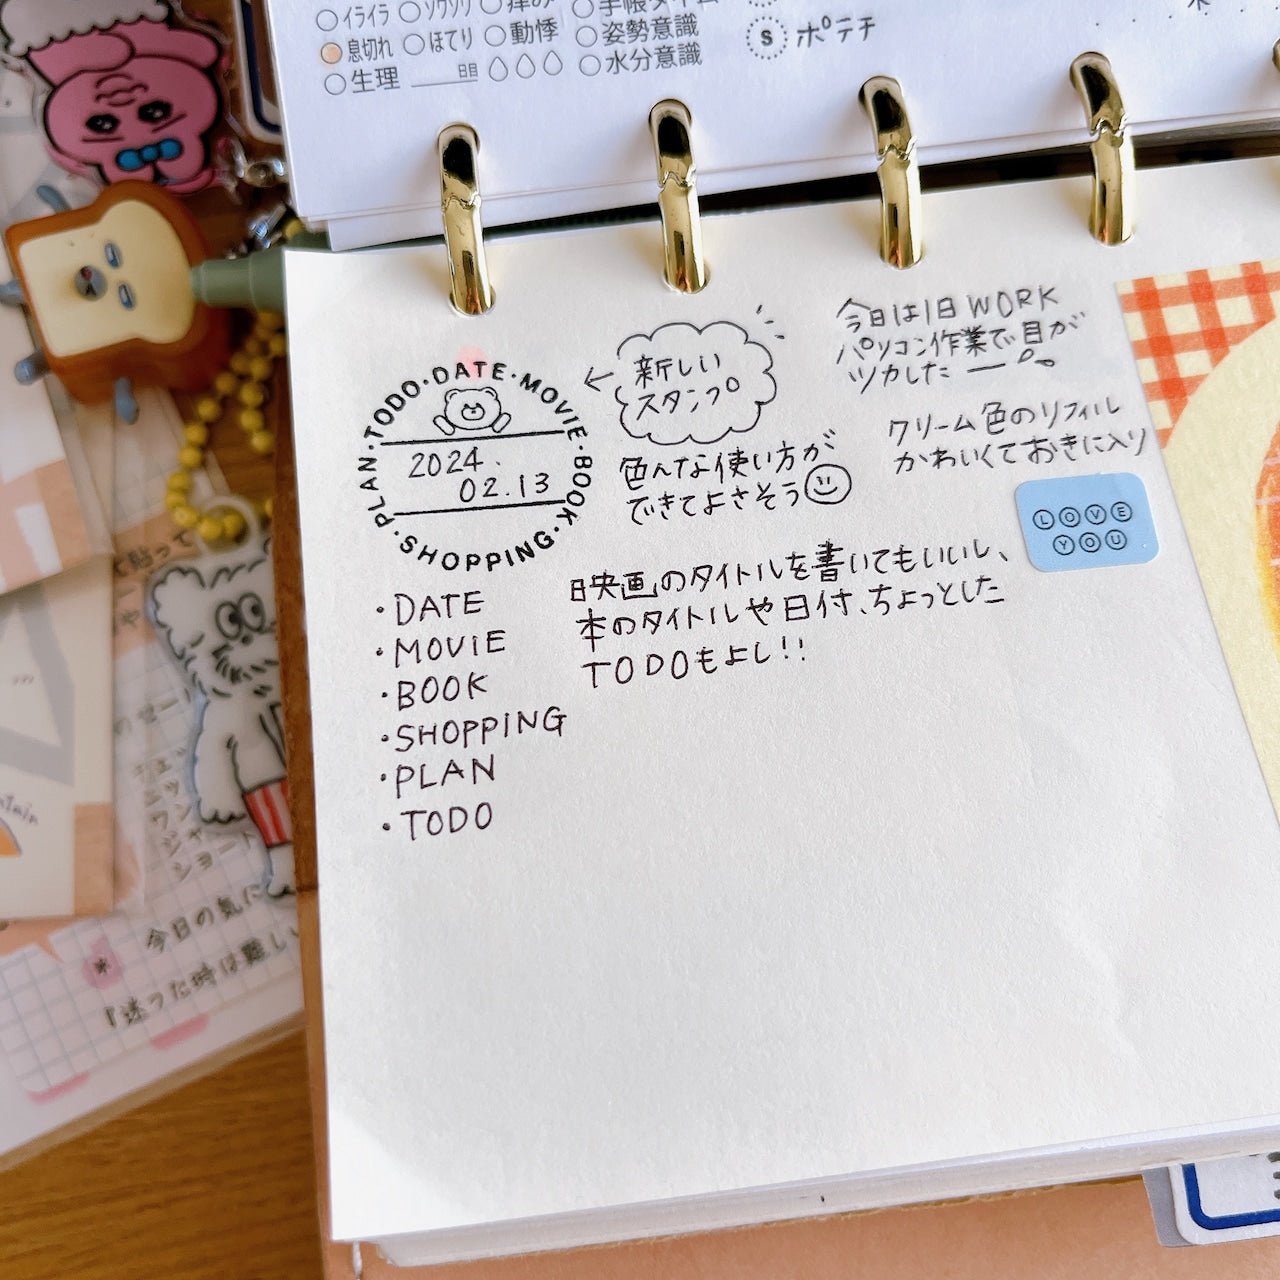 ○イライラ ○ソワソワ
息切れ ○ほてり ○動悸 ○姿勢意識
○生理 日目 ○水分意識
S ポテチ
PLAN・TODO・DATE・MOVIE・BOOK・SHOPPING・
2024.
02.13
← 新しい
スタンプ
色んな使い方が
できてよさそう
今日は1日WORK
パソコン作業で目が
ツカレた
クリーム色のリフィル
かわいくておきに入り
LOVE
YOU
映画のタイトルを書いてもいいし、
本のタイトルや日付、ちょっとした
TODOもよし!!
・DATE
・MOVIE
・BOOK
・SHOPPING
・PLAN
・TODO
て貼って
今日の気に
『迷った時は難しい